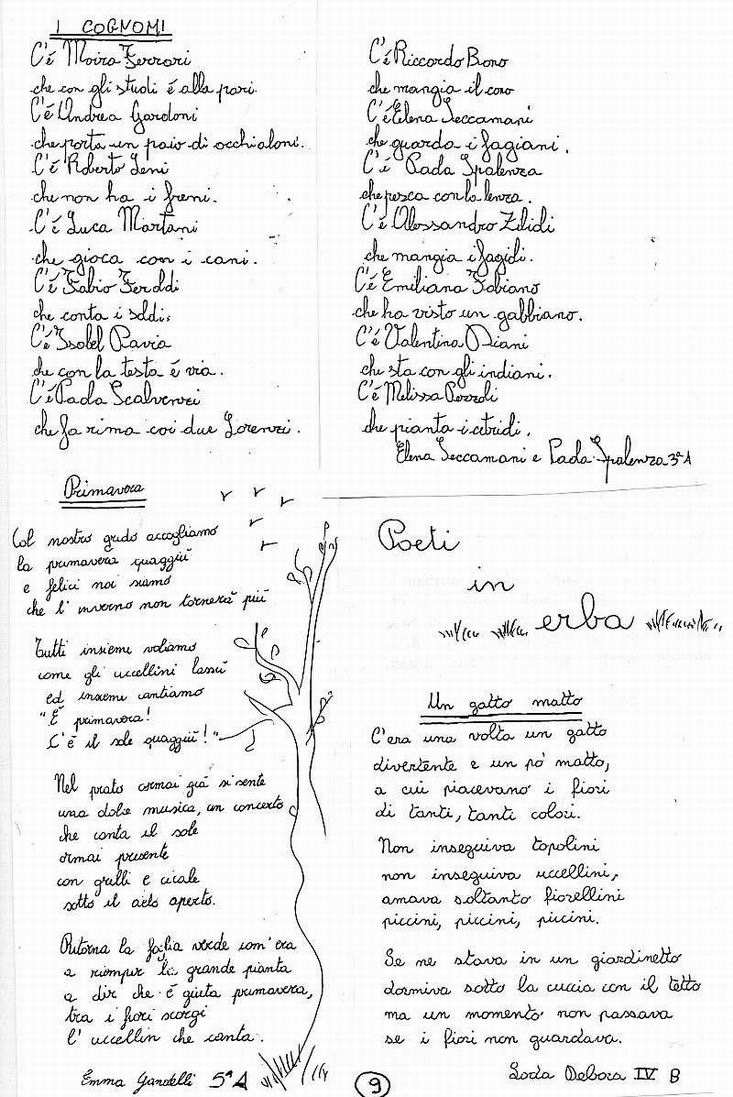 I COGNOMI
C'é Moira Ferrari
che con gli studi é alla pari.
C'é Andrea Gardoni
che porta un paio di occhialoni.
C'é Roberto Leni
che non ha i freni.
C'é Luca Martani
che gioca con i cani.
C'é Fabio Feroldi
che conta i soldi.
C'é Isabel Pavia
che con la testa é via.
C'é Paola Scalvenzi
che fa rima coi due Lorenzi.
C'é Riccardo Bono
che mangia il cono
C'é Elena Seccamani
che guarda i fagiani.
C'é Paola Spalenza
che pesca con la lenza.
C'é Alessandro Zilidi
che mangia i fagidi.
C'é Emiliana Fabiano
che ha visto un gabbiano.
C'é Valentina Diani
che sta con gli indiani.
C'é Melissa
che pianta i cetrioli.
Elena Seccamani e Paola Spalenza 3ª A
Primavera
Col nostro grido accogliamo
la primavera quaggiù
e felici noi siamo
che l'inverno non tornerà più
Tutti insieme voliamo
come gli uccellini lassù
ed insieme cantiamo
"È primavera!
C'è il sole quaggiù!"
Nel prato ormai già si sente
una dolce musica, un concerto
che canta il sole
ormai presente
con grilli e cicale
sotto il cielo aperto.
Ritorna la foglia verde com'era
a riempir la grande pianta
a dir che è giunta primavera,
tra i fiori scorgi
l'uccellin che canta.
Emma Gandelli 5ª A
Poeti
in
erba
Un gatto matto
C'era una volta un gatto
divertente e un pò matto,
a cui piacevano i fiori
di tanti, tanti colori.
Non inseguiva topolini
non inseguiva uccellini,
amava soltanto fiorellini
piccini, piccini, piccini.
Se ne stava in un giardinetto
dormiva sotto la cuccia con il tetto
ma un momento non passava
se i fiori non guardava.
Loda Debora IV B
9